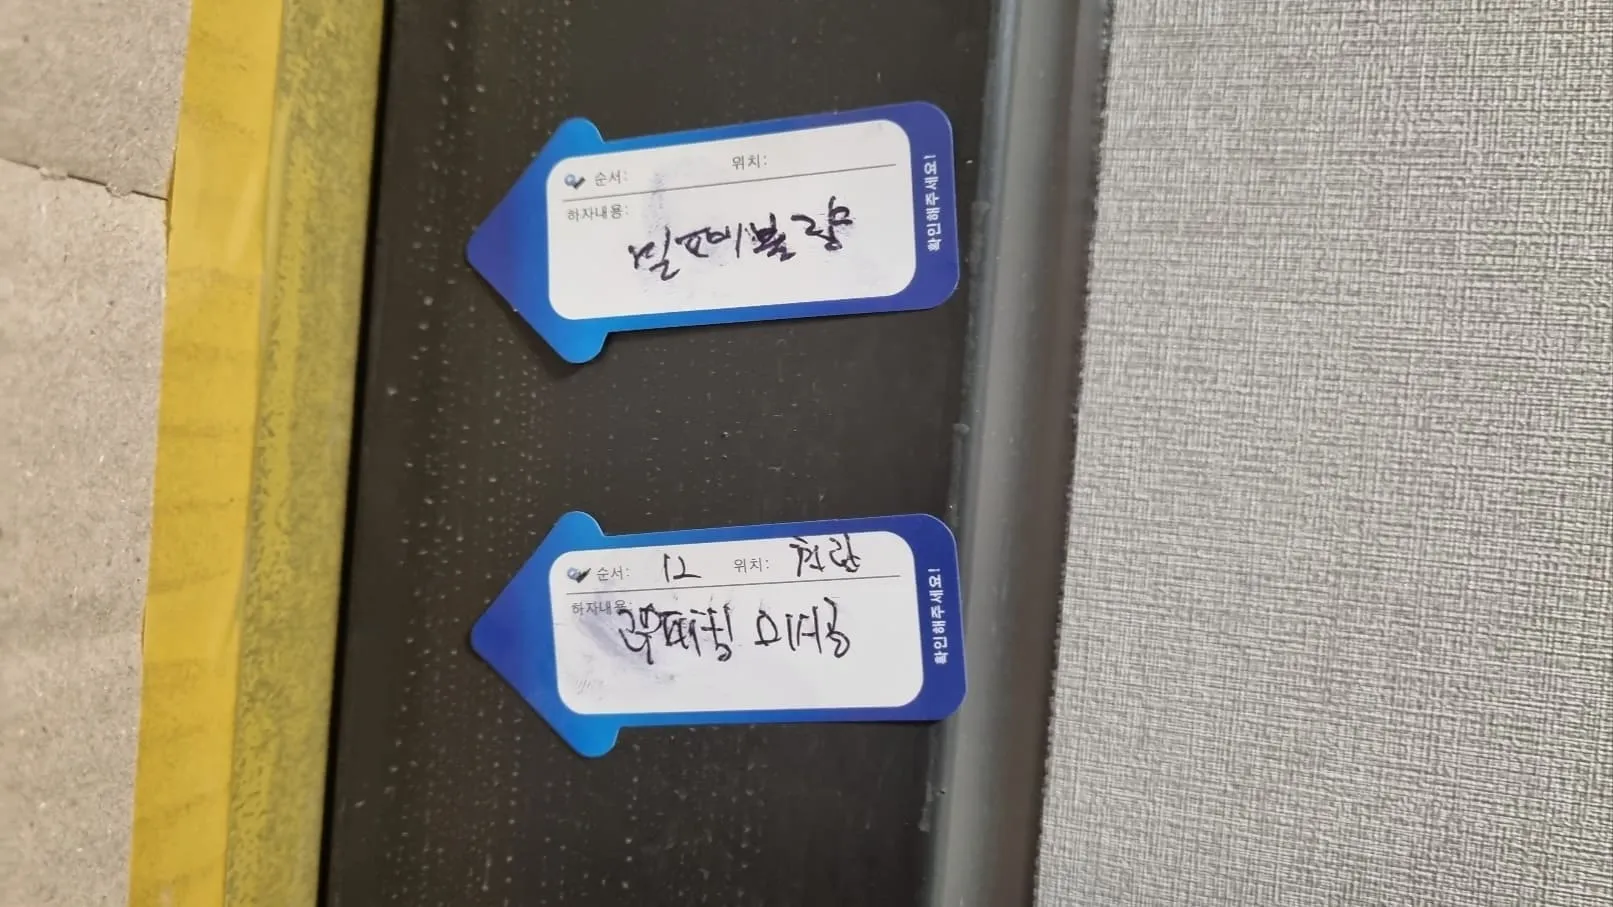 순서:
위치:
하자내용:
밑표며불량
확인해주세요!
순서: 12
위치: 현관
하자내용:
확인해주세요!